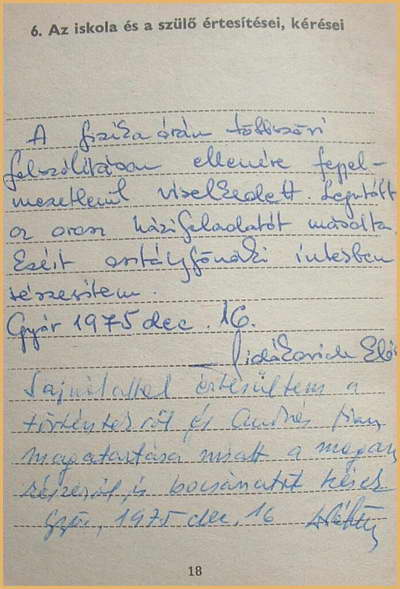 6. Az iskola és a szülő értesítései, kérései
A fizika órán többszöri
felszólításom ellenére fegyel-
mezetlenül viselkedett. Legutóbb
az orosz házifeladatot másolta.
Ezért osztályfőnöki intésben
részesítem.
Győr 1975 dec. 16.
Sajnálattal értesültem a
történtekről és András fiam
magatartása miatt a magam
részéről is bocsánatot kérek
Győr, 1975 dec. 16
18